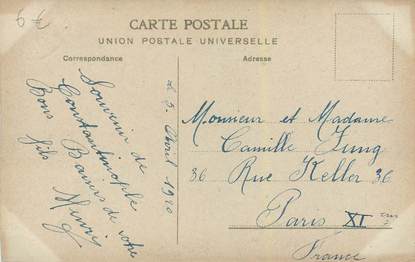 6 €
CARTE POSTALE
UNION POSTALE UNIVERSELLE
Correspondance
Adresse
Souvenir de
Constantinople
Baisers de votre
Bons
fils
Henri
le 5. Avril 1920
Monsieur et Madame
Camille Jung
36 Rue Keller 36
Paris XI
France